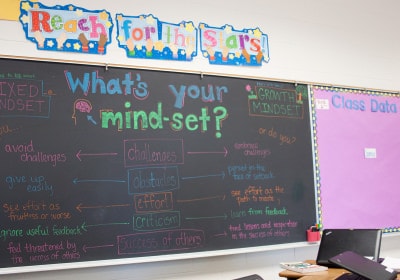 Reach for the Stars!
What's your
mind-set?
FIXED
MINDSET
GROWTH
MINDSET
Class Data
you...
or do you?
avoid
challenges
challenges
embrace
challenges
give up
easily
obstacles
persist in the
face of setback
see effort as
fruitless or worse
effort
see effort as the
path to
ignore useful feedback
criticism
learn from feedback
feel threatened by
the success of others
success of others
find lessons and inspiration
in the success of others